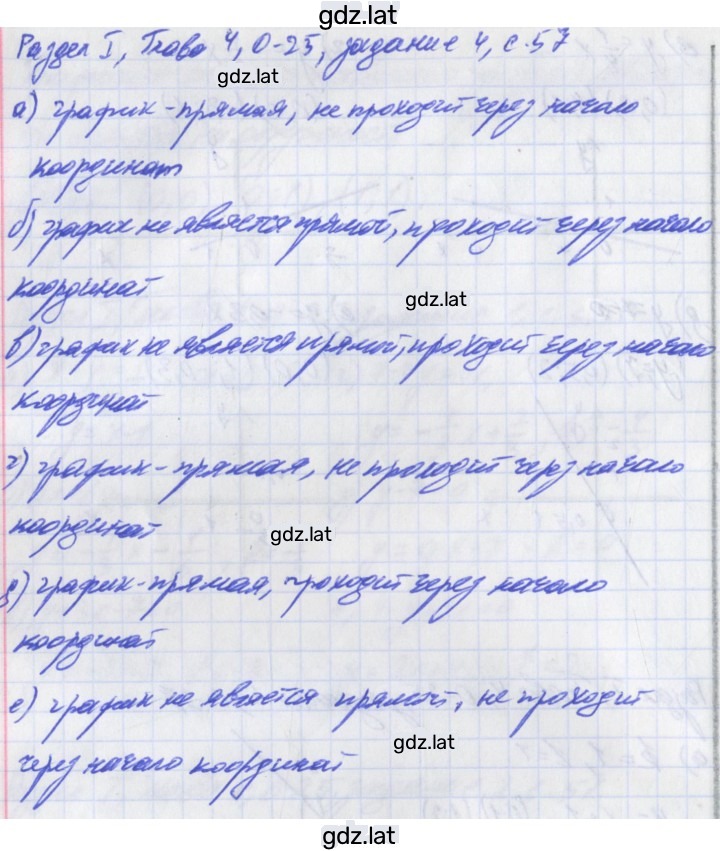 gdz.lat
Раздел I, Глава 4, О-25, задание 4, с. 57
gdz.lat
а) график - прямая, не проходит через начало
координат
б) график не является прямой, проходит через начало
координат
gdz.lat
в) график не является прямой, проходит через начало
координат
г) график - прямая, не проходит через начало
координат
gdz.lat
д) график - прямая, проходит через начало
координат
е) график не является прямой, не проходит
gdz.lat
через начало координат
gdz.lat